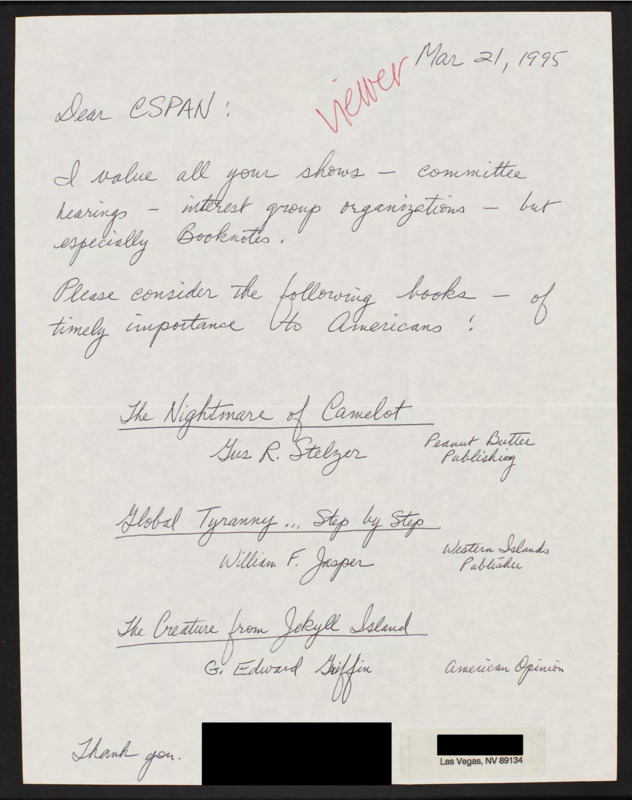 Mar 21, 1995
viewer
Dear CSPAN:
I value all your shows – committee
hearings – interest group organizations – but
especially Booknotes.
Please consider the following books – of
timely importance to Americans:
The Nightmare of Camelot
Gus R. Stelzer
Peanut Butter
Publishing
Global Tyranny... Step by Step
William F. Jasper
Western Islands
Publisher
The Creature from Jekyll Island
G. Edward Griffin
American Opinion
Thank you.
Las Vegas, NV 89134